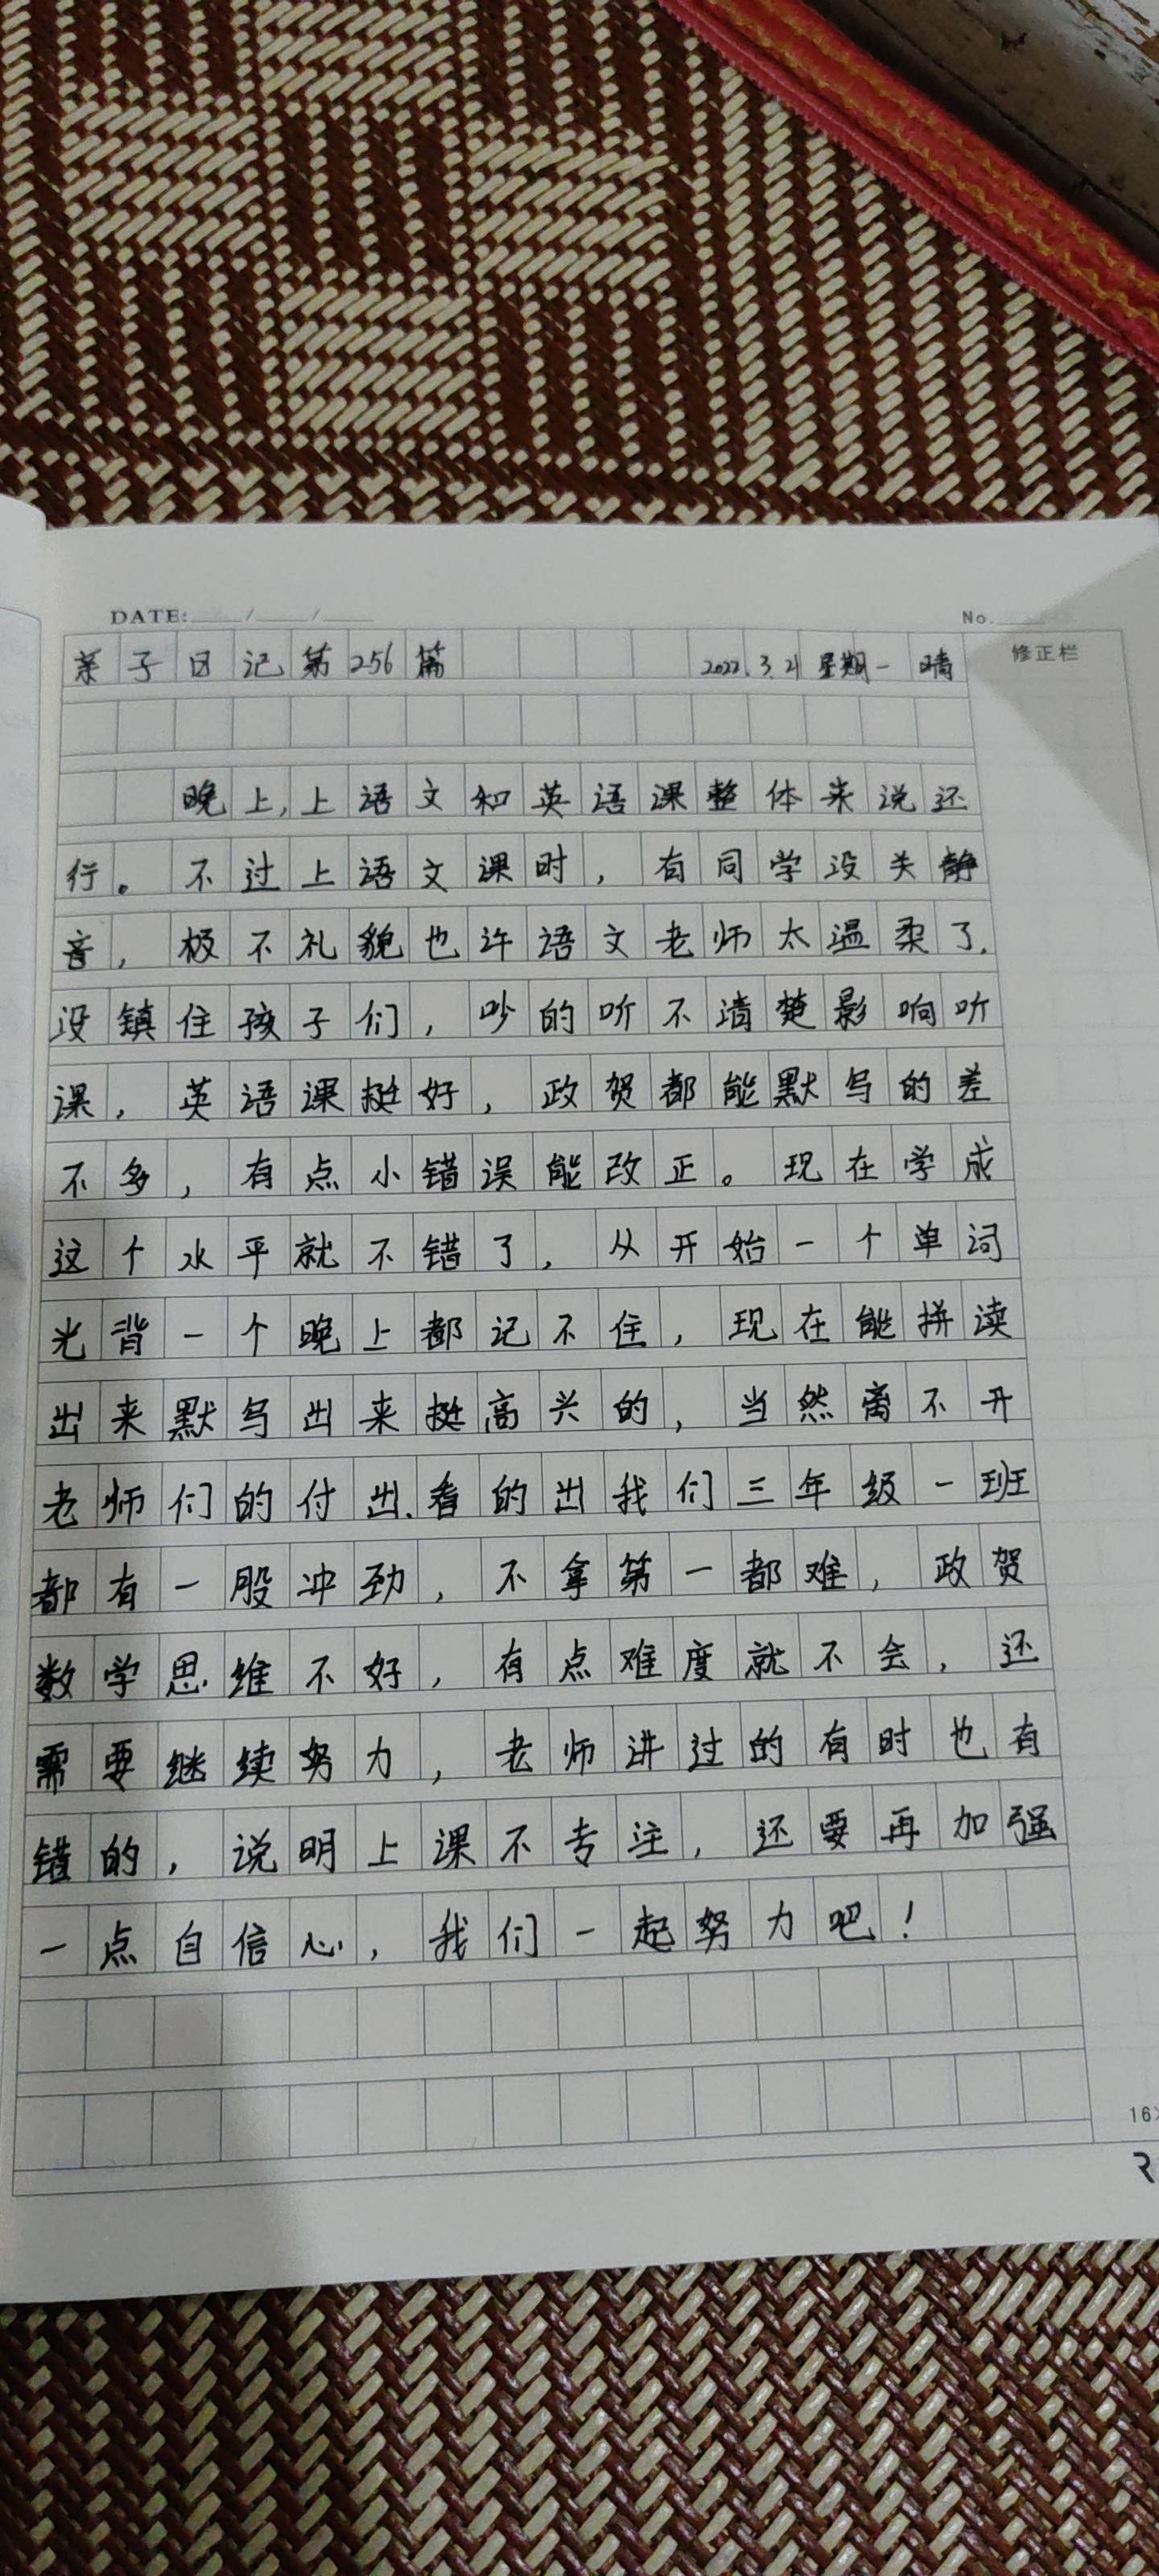 DATE: / /
No.
亲子日记第256篇 2022.3.21 星期一 晴
修正栏
晚上,上语文和英语课整体来说还
行。不过上语文课时,有同学没关静
音,极不礼貌也许语文老师太温柔了.
没镇住孩子们,吵的听不清楚影响听
课,英语课挺好,政贺都能默写的差
不多,有点小错误能改正。现在学成
这个水平就不错了,从开始一个单词
光背一个晚上都记不住,现在能拼读
出来默写出来挺高兴的,当然离不开
老师们的付出.看的出我们三年级一班
都有一股冲劲,不拿第一都难,政贺
数学思维不好,有点难度就不会,还
需要继续努力,老师讲过的有时也有
错的,说明上课不专注,还要再加强
一点自信心,我们一起努力吧!
16